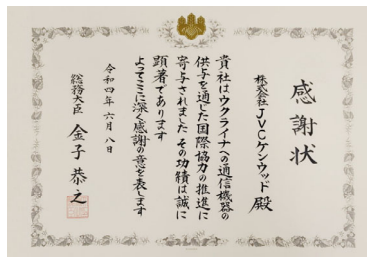 感謝状
株式会社JVCケンウッド 殿
貴社はウクライナへの通信機器の
供与を通じた国際協力の推進に
寄与されました その功績は誠に
顕著であります
よってここに深く感謝の意を表します
令和四年六月八日
総務大臣 金子恭之